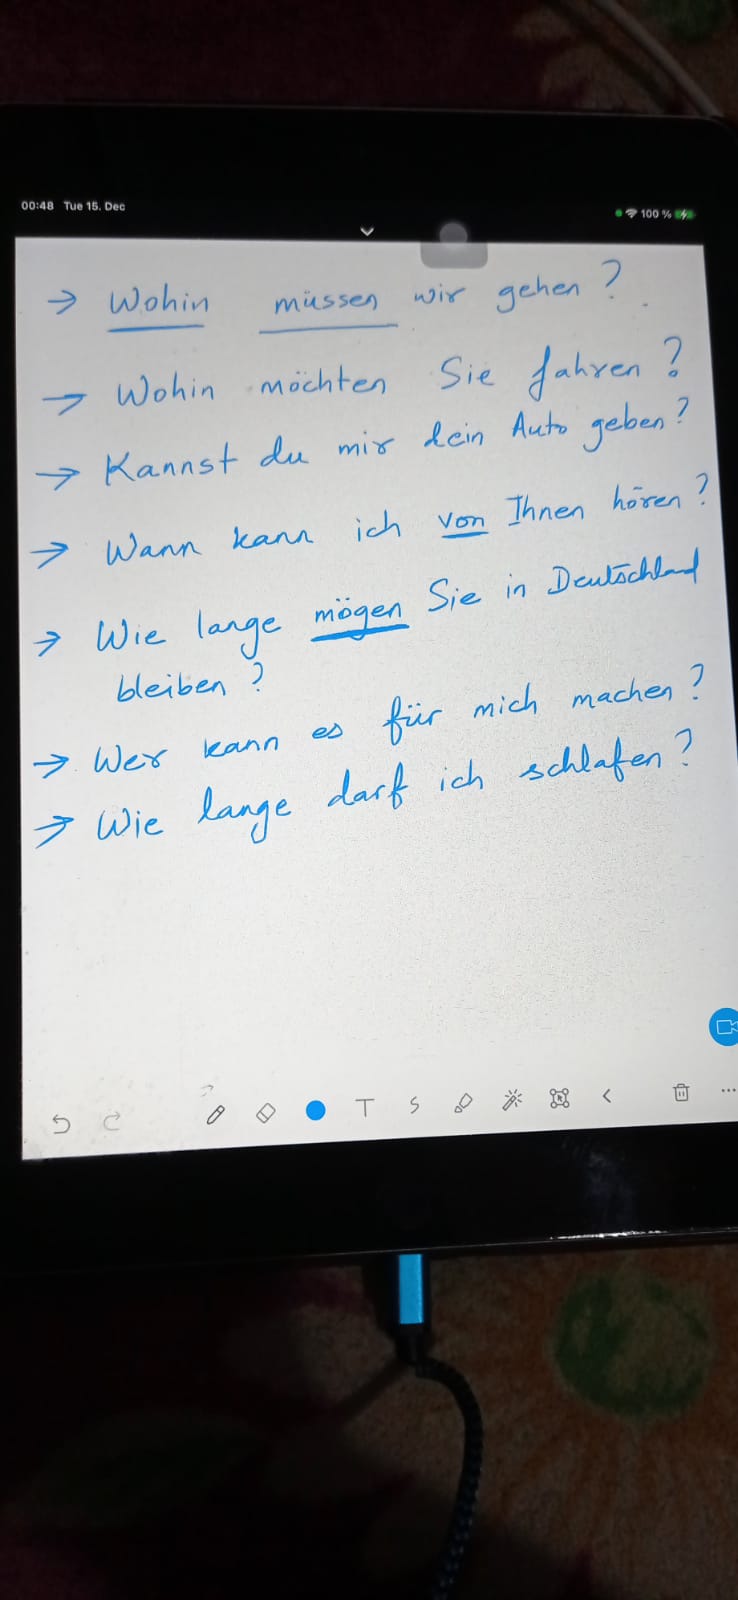 00:48 Tue 15. Dec
100 %
→ Wohin müssen wir gehen ?
→ Wohin möchten Sie fahren ?
→ Kannst du mir dein Auto geben ?
→ Wann kann ich von Ihnen hören ?
→ Wie lange mögen Sie in Deutschland
bleiben ?
→ Wer kann es für mich machen ?
→ Wie lange darf ich schlafen ?
T